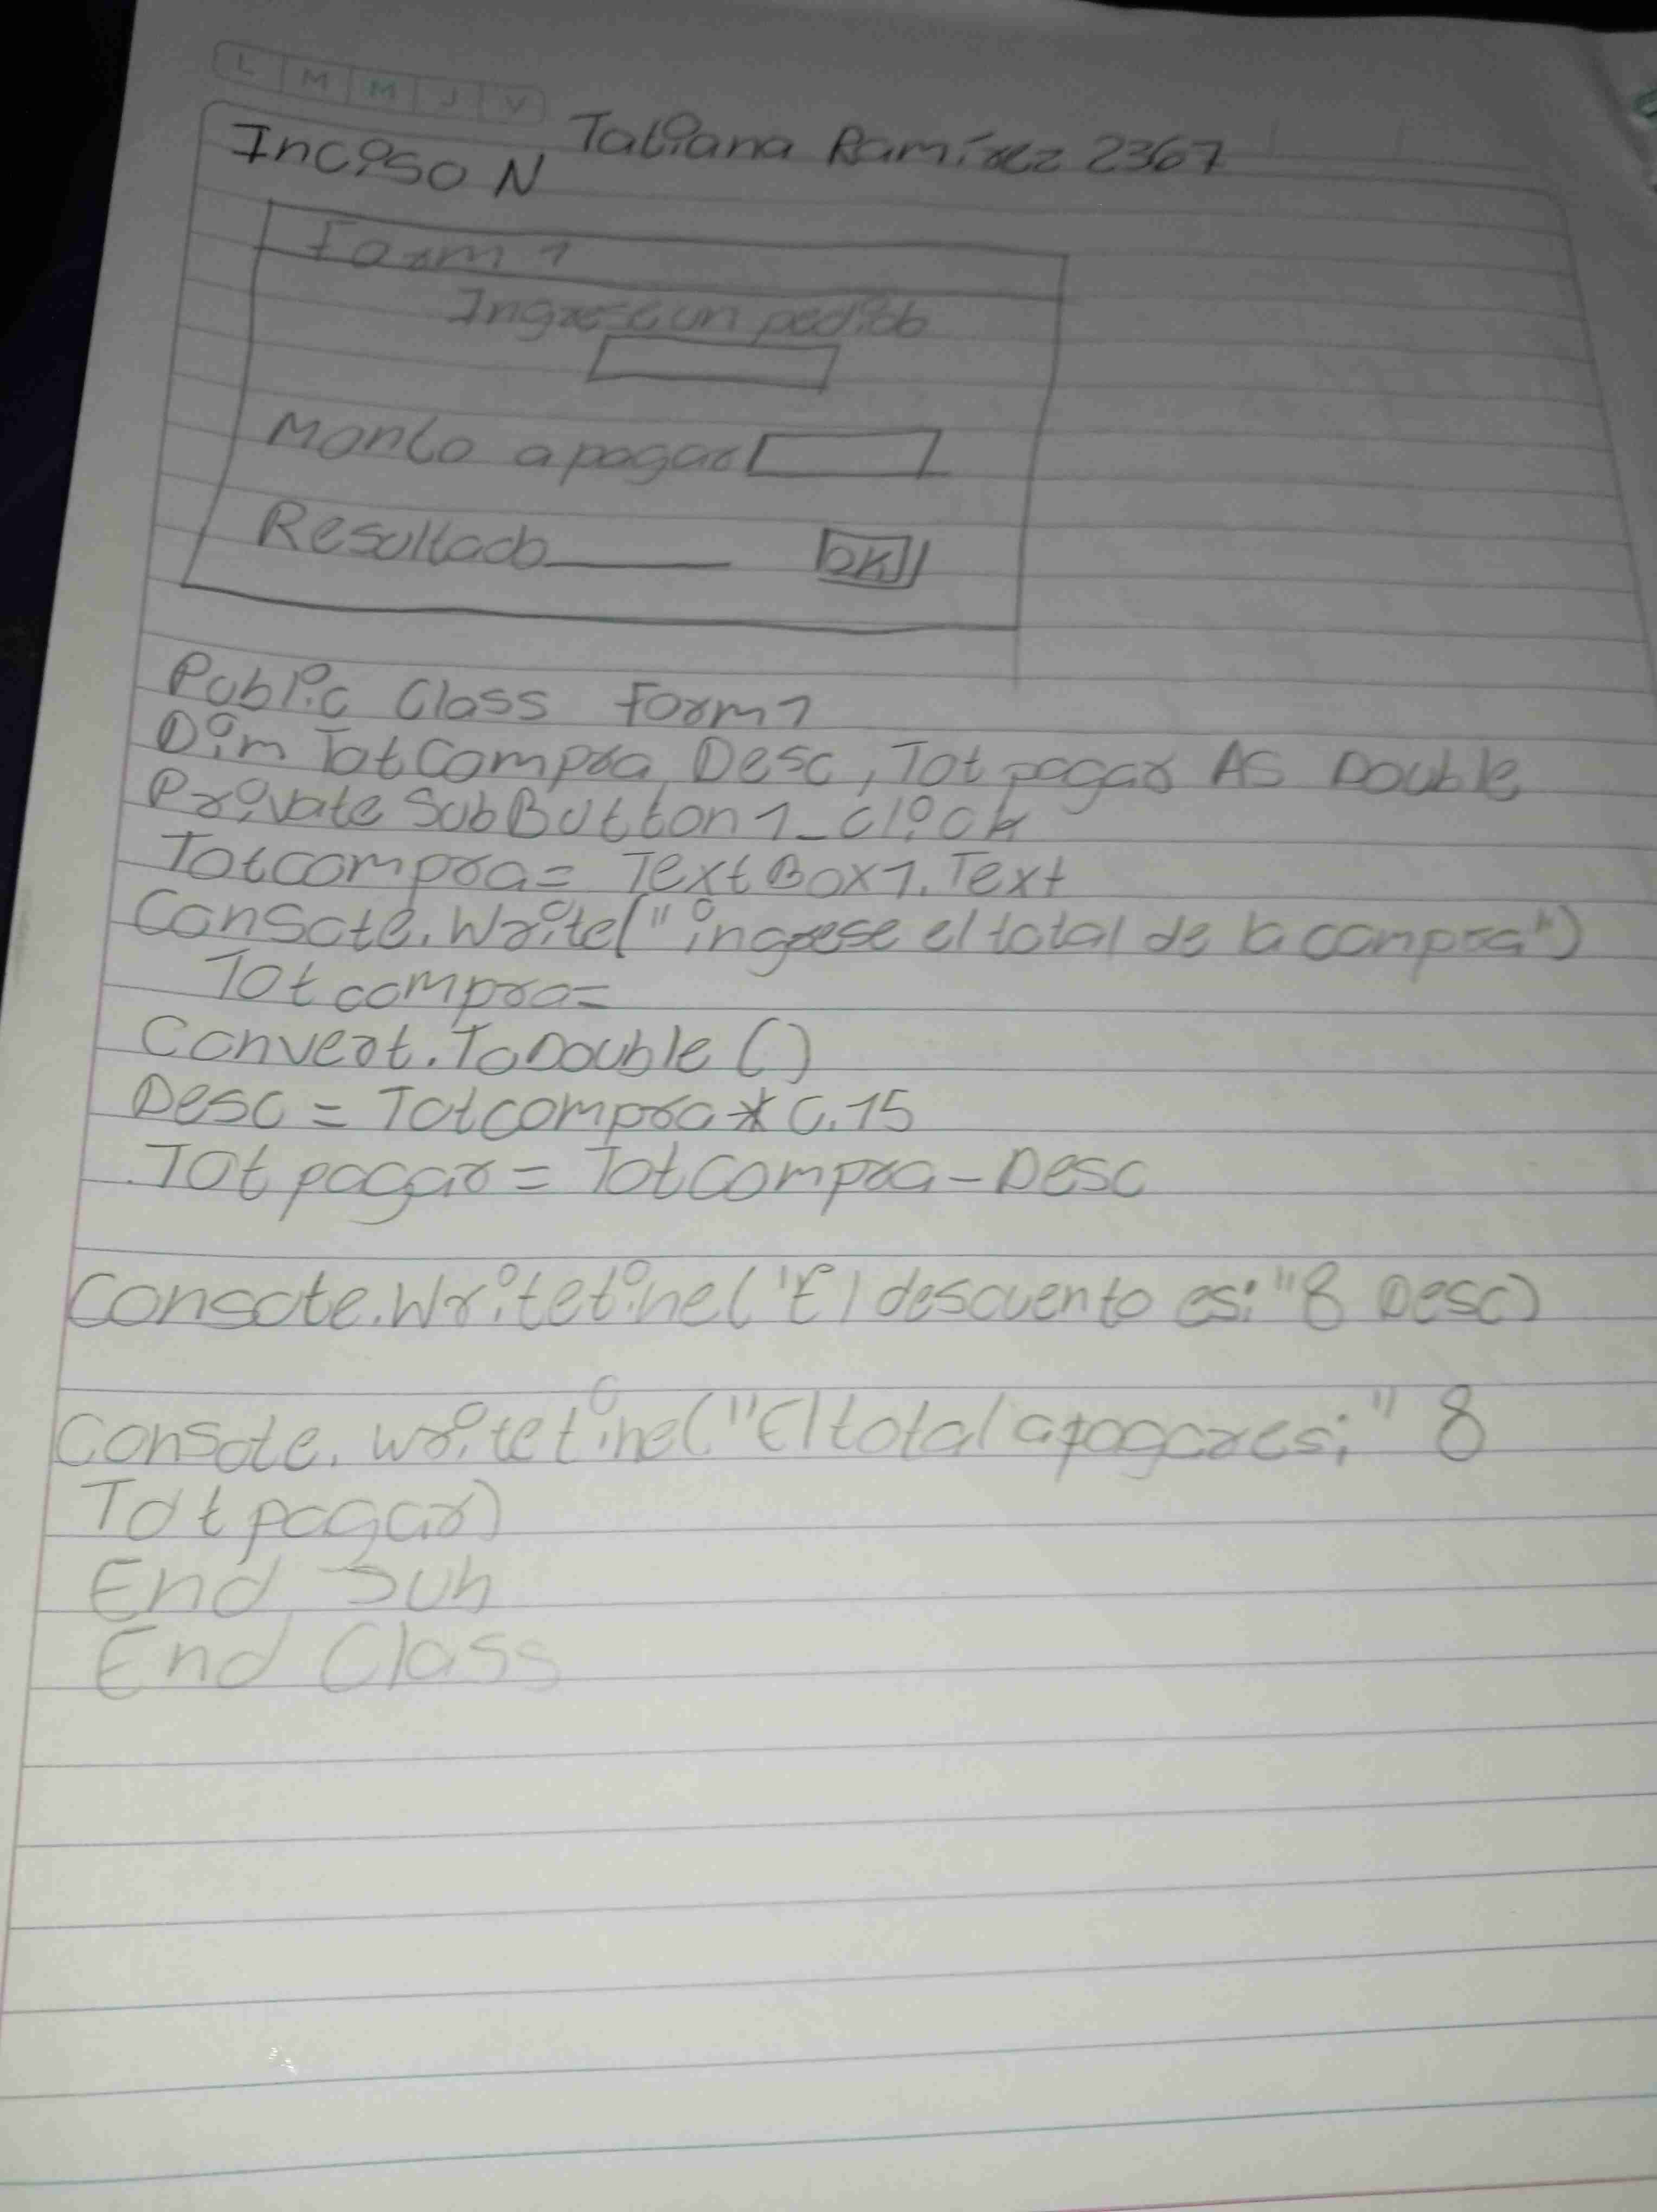 L M M J V
Tatiana Ramírez 2367
Inciso N
Form 1
Ingrese un pedido
Monto a pagar
Resultado
OK
Public Class Form1
Dim TotCompra, Desc, Tot pagar AS Double
Private Sub Button 1_click
Totcompra = TextBox1.Text
Consote.Write("ingrese el total de la compra")
Tot compra=
Convert.ToDouble ()
Desc = Totcompra * 0.15
Tot pagar = TotCompra - Desc
Consote.Writetine("El descuento es: "& Desc)
Consote.writetine("El total a pagar es: " &
Tot pagar)
End Sub
End Class